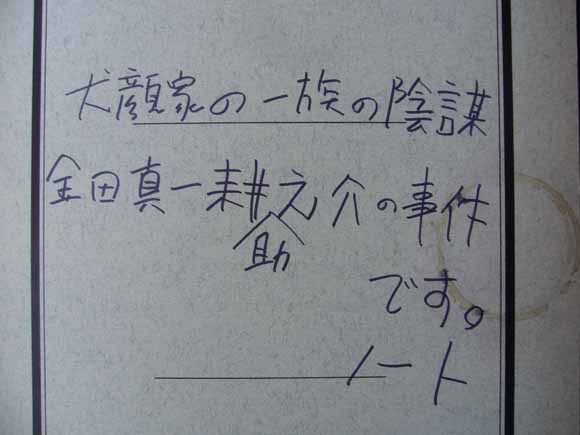 犬顔家の一族の陰謀
金田真一耕助之介の事件
です。
ノート